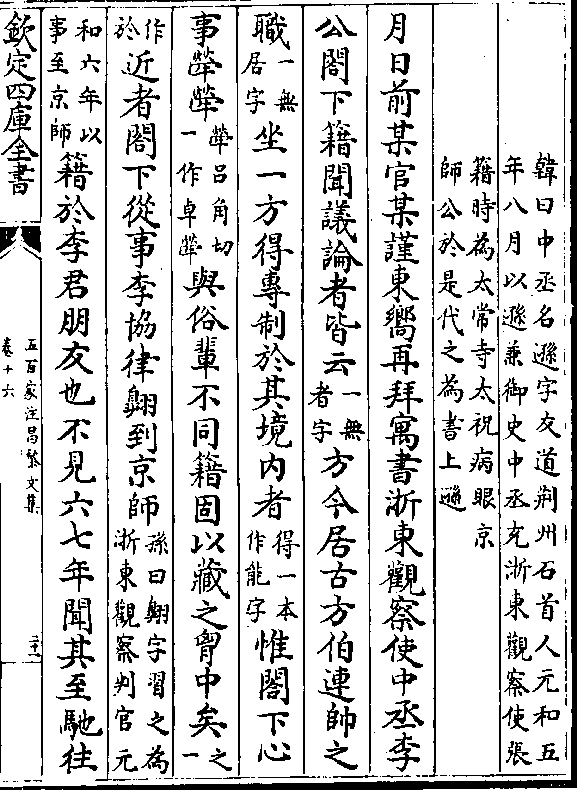 韓曰中丞名遜字友道荆州石首人元和五
年八月以遜兼御史中丞充浙東觀察使張
籍時為太常寺太祝病眼京
師公於是代之為書上遜
月日前某官某謹東嚮再拜寓書浙東觀察使中丞李
公閤下籍聞議論者皆云一無者字方今居古方伯連帥之
職一無居字坐一方得專制於其境内者得一本作能字惟閤下心
事犖犖犖吕角切一作卓犖與俗輩不同籍固以藏之胷中矣之一
作於近者閤下從事李協律翺到京師孫曰翺字習之為浙東觀察判官元
和六年以事至京師籍於李君朋友也不見六七年聞其至馳往
欽定四庫全書
五百家注昌黎文集
卷十六
二十一